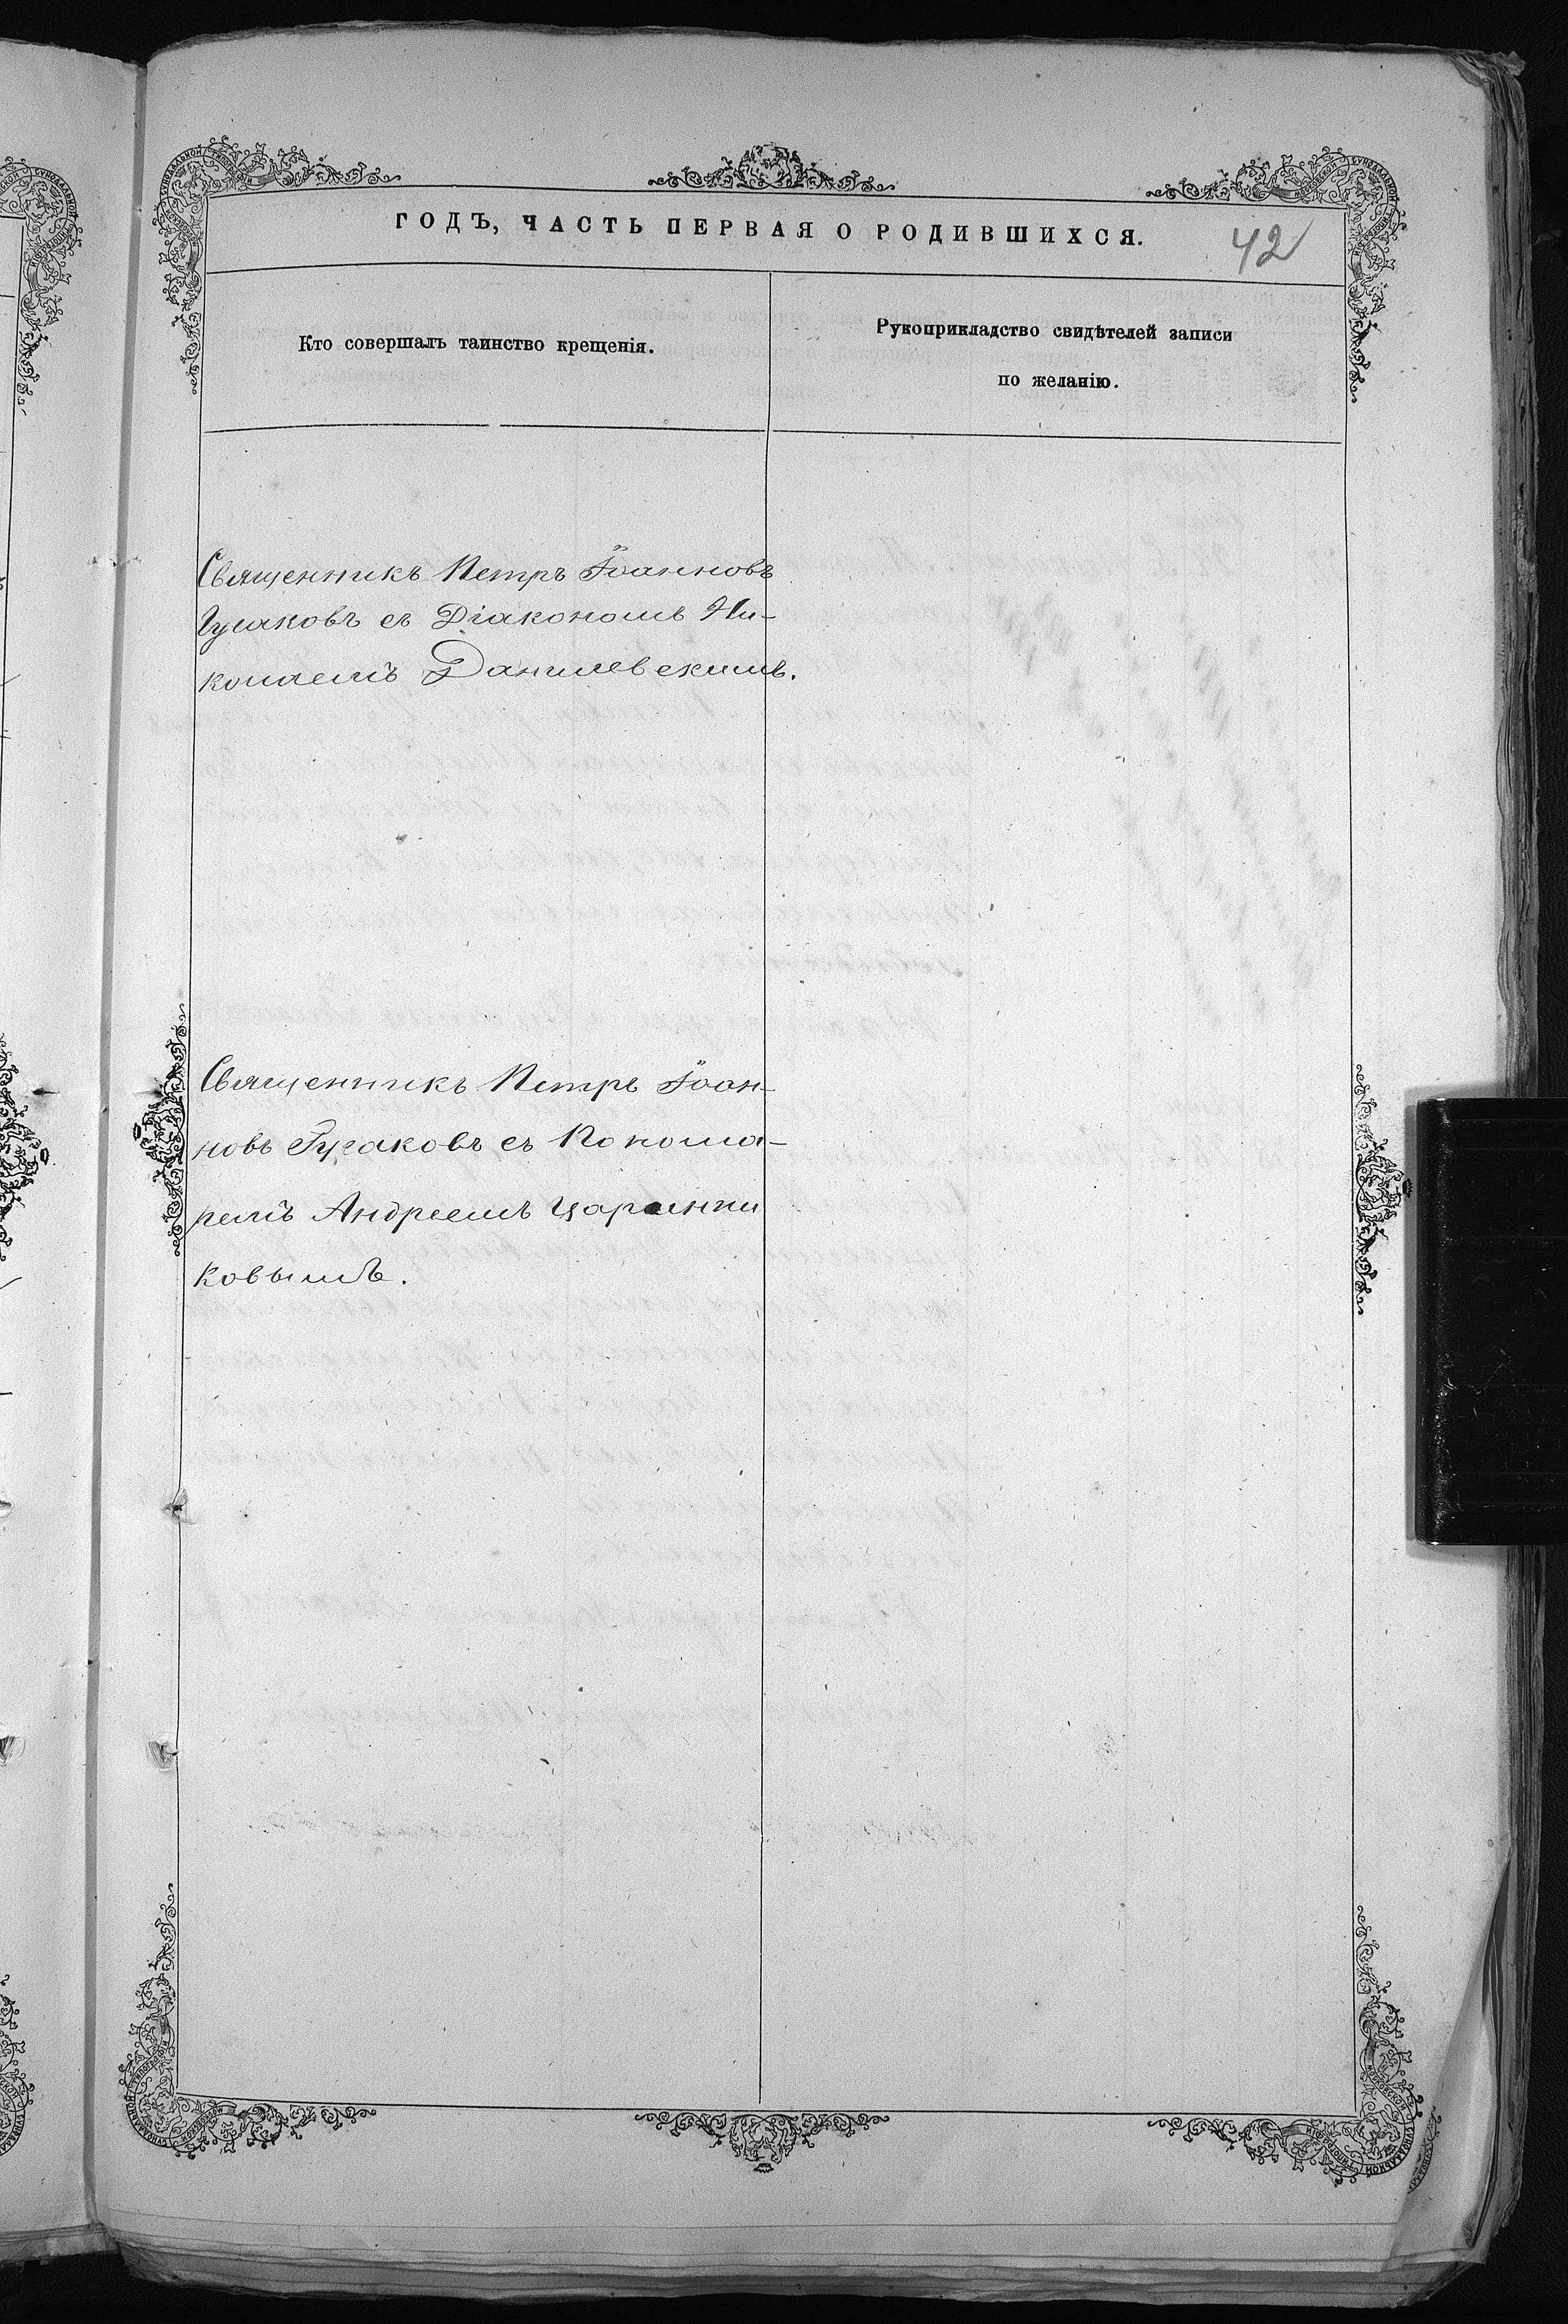 ГОДЪ, ЧАСТЬ ПЕРВАЯ О РОДИВШИХСЯ.
42
Кто совершалъ таинство крещенія.
Рукоприкладство свидѣтелей записи
по желанію.
Священникъ Петръ Іоанновъ
Гусаковъ съ Діакономъ Ни-
колаемъ Данилевскимъ.
Священникъ Петръ Іоан-
новъ Гусаковъ съ Понома-
ремъ Андреемъ
ковымъ.